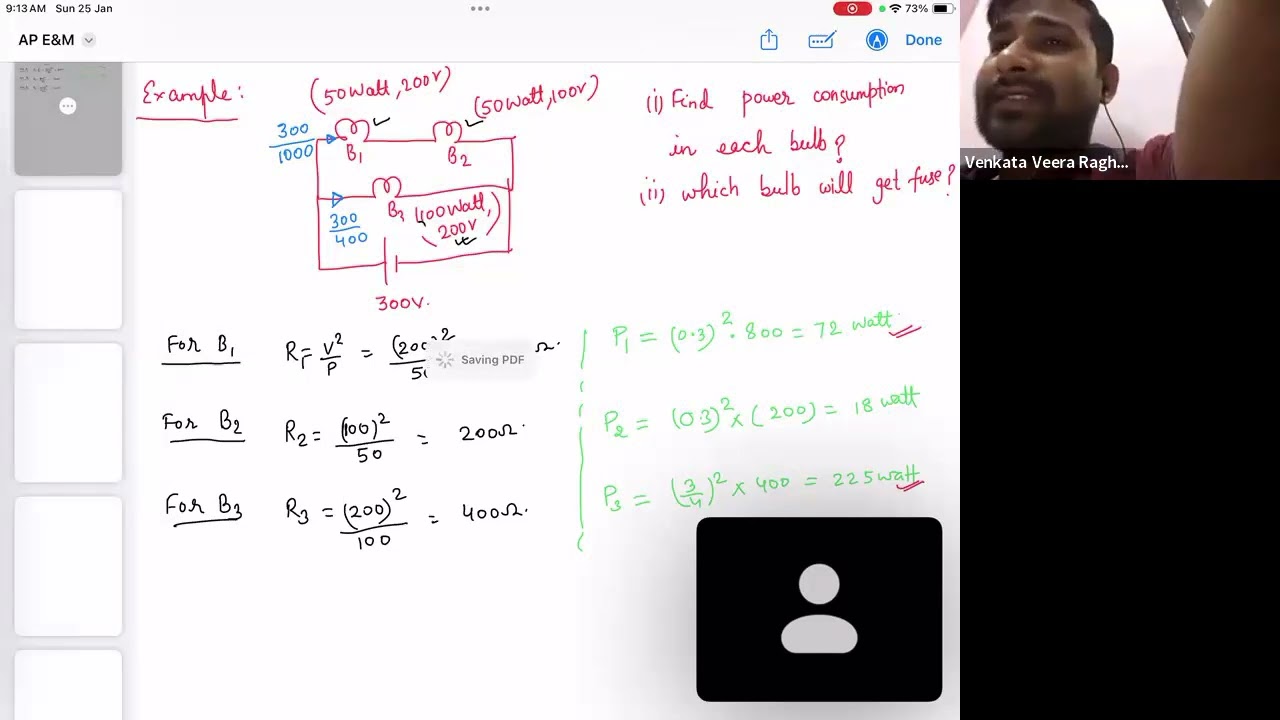 9:13 AM Sun 25 Jan
73%
AP E&M
Done
Example:
(50 Watt, 200V)
(50 Watt, 100V)
300
1000
B1
B2
300
400
B3 (100 Watt,
200V)
300V.
(i) Find power consumption
in each bulb?
(ii) which bulb will get fuse?
Venkata Veera Ragh...
For B1 R1 = V²/P = (200)²/50 Ω.
Saving PDF
For B2 R2 = (100)²/50 = 200Ω.
For B3 R3 = (200)²/100 = 400Ω.
P1 = (0.3)² · 800 = 72 watt.
P2 = (0.3)² × (200) = 18 watt
P3 = (3/4)² × 400 = 225 watt